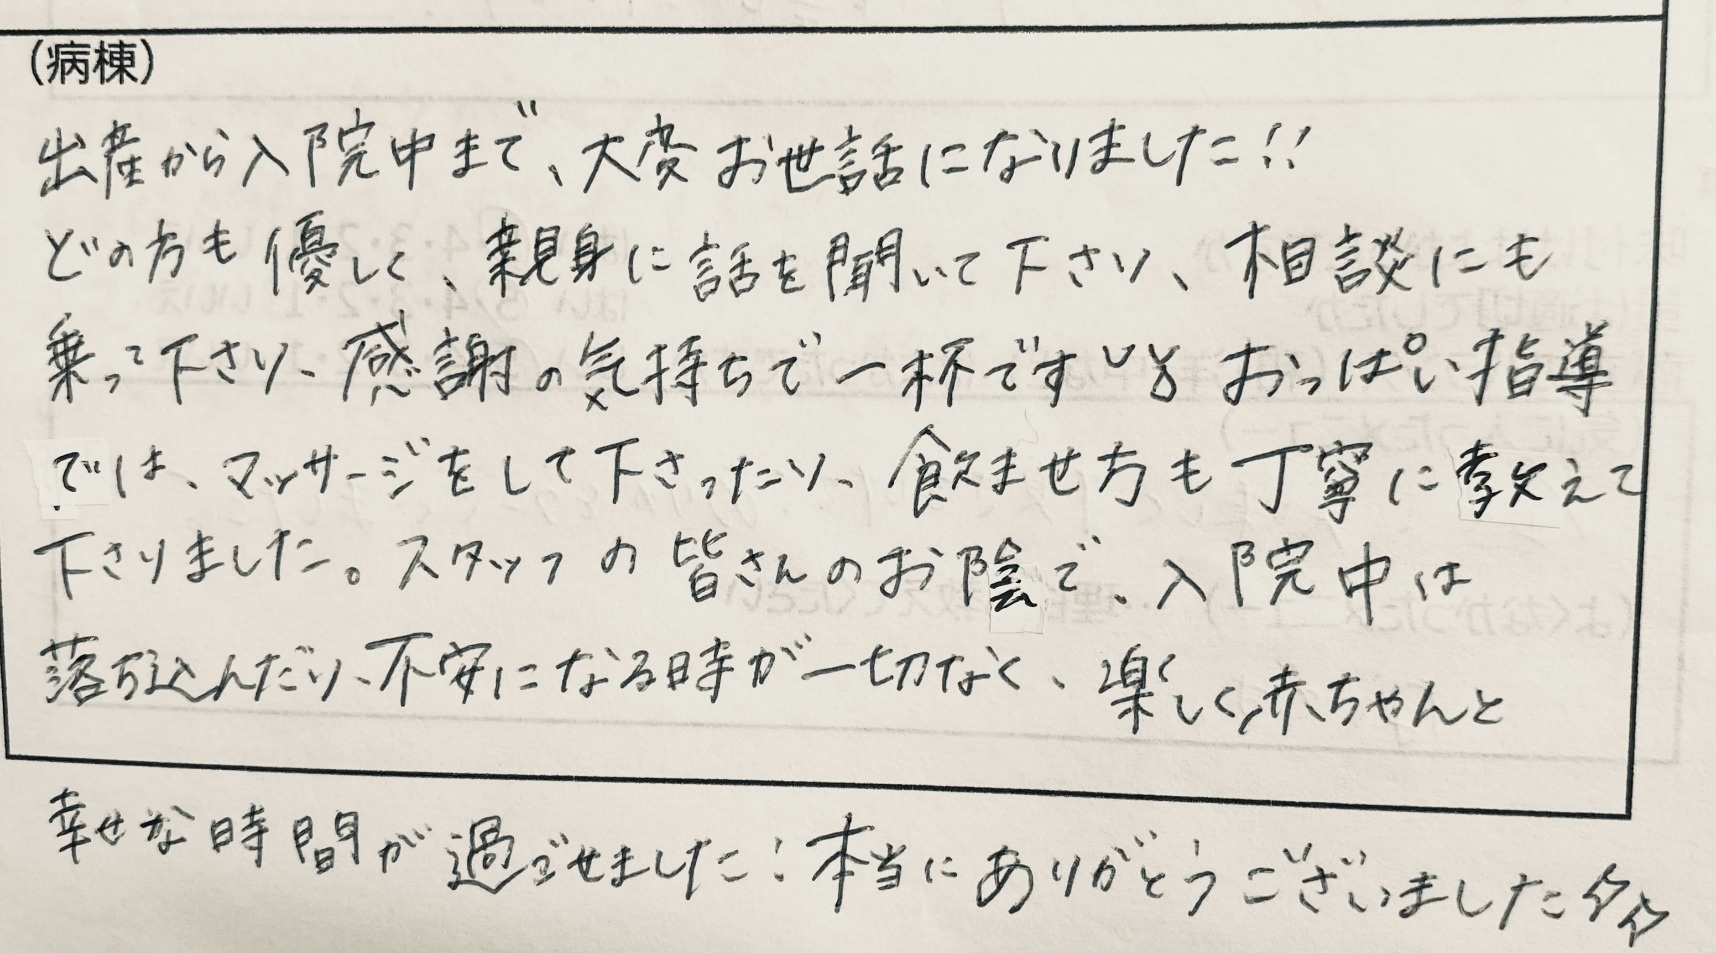 (病棟)
出産から入院中まで、大変お世話になりました!!
どの方も優しく、親身に話を聞いて下さり、相談にも
乗って下さり、感謝の気持ちで一杯です おっぱい指導
では、マッサージをして下さったり、飲ませ方も丁寧に教えて
下さりました。スタッフの皆さんのお陰で、入院中は
落ち込んだり、不安になる時が一切なく、楽しく、赤ちゃんと
幸せな時間が過ごせました!本当にありがとうございました☆☆